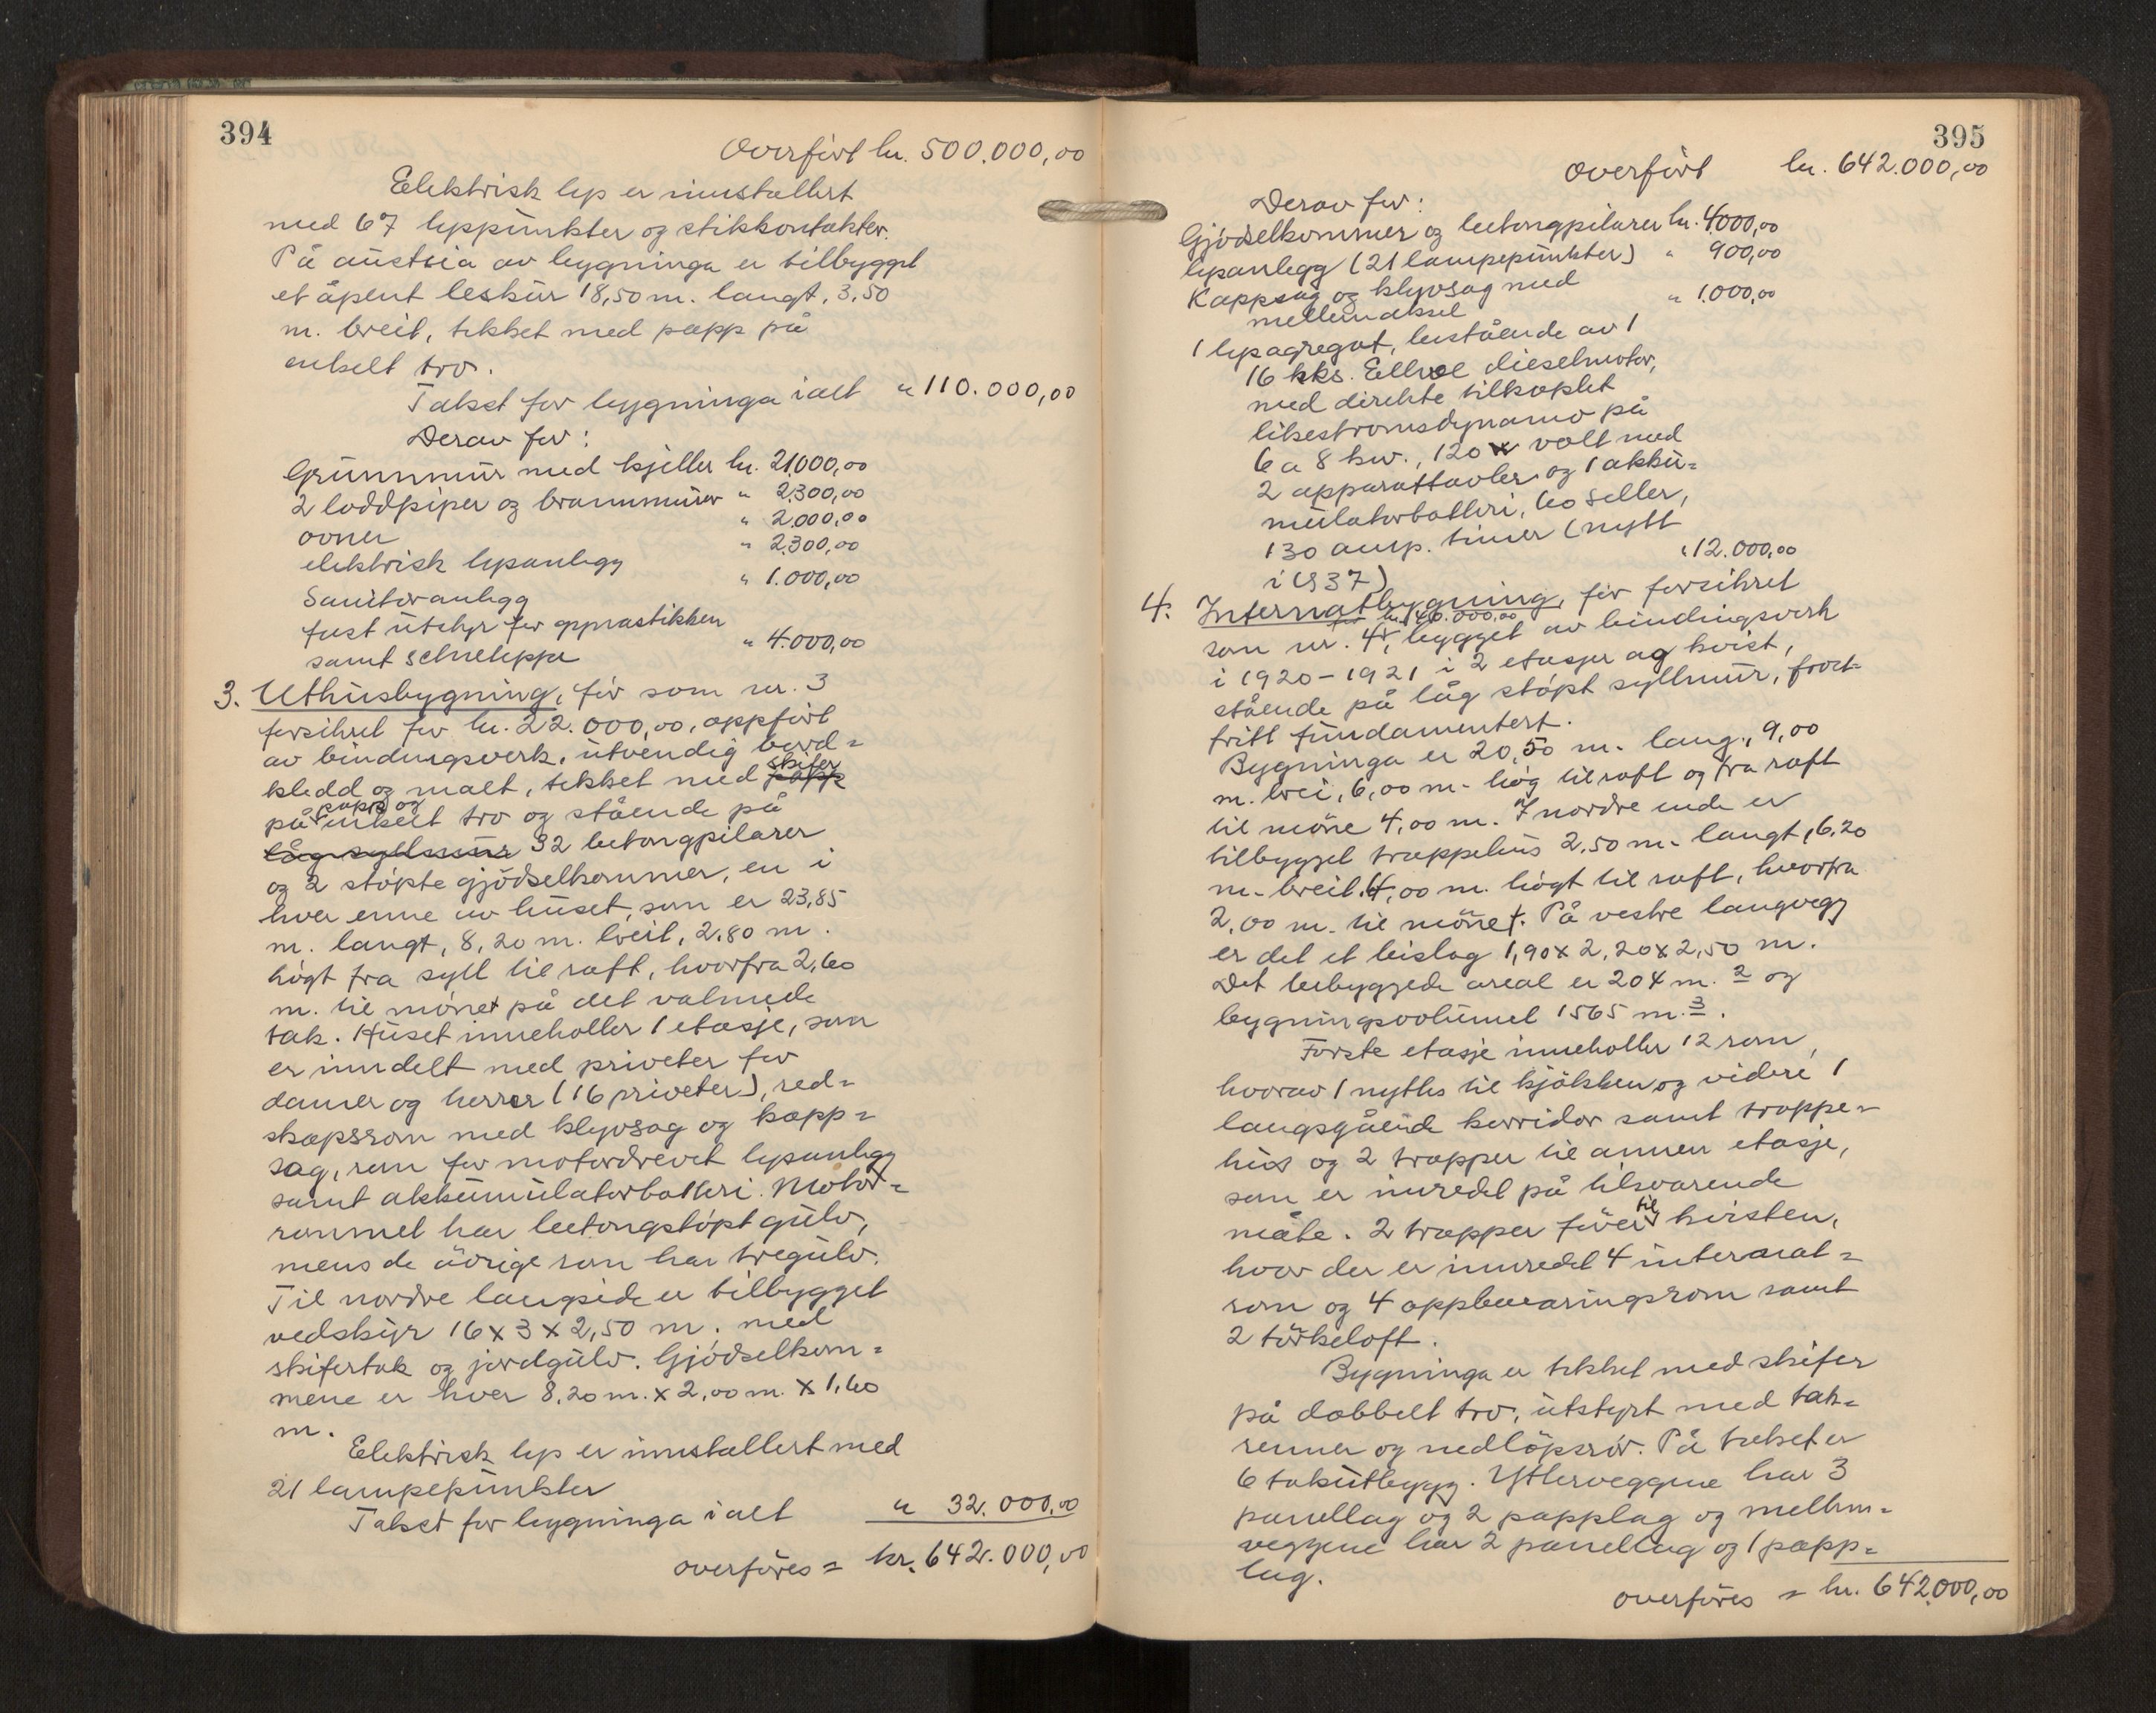 394
Overført kr. 500.000,00
Elektrisk lys er innstallert
med 67 lyspunkter og stikkontakter.
På austsia av bygninga er tilbygget
et åpent leskur 18,50 m. langt, 3,50
m. breit, tekket med papp på
enkelt tro.
Takst for bygninga ialt " 110.000,00
Derav for:
Grunnmur med kjeller kr. 21000,00
2 loddpiper og brannmurer " 2.300,00
ovner " 2.000,00
elektrisk lysanlegg " 2.300,00
Sanitæranlegg " 1.000,00
fast utstyr for gymnastikken
samt sceneteppe " 4.000,00
3. Uthusbygning, før som nr. 3
forsikret for kr. 22.000,00, oppført
av bindingsverk, utvendig bord=
kledd og malt, tekket med papp skifer
på papp og enkelt tro og stående på
låg syllmur 32 betongpilarer
og 2 støpte gjødselkommer, en i
hver enne av huset, som er 23,85
m. langt, 8,20 m. breit, 2,80 m.
høgt fra syll til raft, hvorfra 2,60
m. til mønet på det valmede
tak. Huset inneholler 1 etasje, som
er inndelt med priveter for
damer og herrer (16 priveter), red=
skapsrom med klyvsag og kapp=
sag, rom for motordrevet lysanlegg
samt akkumulatorbatteri. Motor=
rommet har betongstøpt gulv,
mens de øvrige rom har tregulv.
Til nordre langside er tilbygget
vedskjur 16 x 3 x 2,50 m. med
skifertak og jordgulv. Gjødselkom=
mene er hver 8,20 m. x 2,00 m. x 1,60
m.
Elektrisk lys er innstallert med
21 lampepunkter
Takst for bygninga ialt " 32.000,00
overføres = kr. 642.000,00
395
Overført kr. 642.000,00
Derav for:
Gjødselkommer og betongpilarer kr. 4000,00
lysanlegg (21 lampepunkter) " 900,00
Kappsag og klyvsag med
mellemaksel " 1.000,00
1 lysagregat, bestående av 1
16 hks. Ellwe dieselmotor,
med direkte tilkoplet
likestrømsdynamo på
6 a 8 kw., 120 volt med
2 apparattavler og 1 akku=
mulatorbatteri, 60 seller,
130 amp. timer (nytt
i 1937) " 12.000,00
4. Internatbygning, før forsikret
som nr. 4, for kr. 140.000,00 bygget av bindingsverk
i 1920 - 1921 i 2 etasjer og kvist,
stående på låg støpt syllmur, frost=
fritt fundamentert.
Bygninga er 20,50 m. lang, 9,00
m. brei, 6,00 m. høg til raft og fra raft
til møne 4,00 m. I nordre ende er
tilbygget trappehus 2,50 m. langt, 6,20
m. breit, 4,00 m. høgt til raft, hvorfra
2,00 m. til mønet. På vestre langvegg
er det et bislag 1,90 x 2,20 x 2,50 m.
Det bebyggede areal er 204 m. 2 og
bygningsvolumet 1565 m. 3.
Første etasje inneholler 12 rom,
hvorav 1 nyttes til kjøkken og videre 1
langsgående korridor samt trappe=
hus og 2 trapper til annen etasje,
som er innredet på tilsvarende
måte. 2 trapper fører til kvisten,
hvor der er innredet 4 internat=
rom og 4 oppbevaringsrom samt
2 tørkeloft.
Bygninga er tekket med skifer
på dobbelt tro, utstyrt med tak=
renner og nedløpsrør. På taket er
6 takutbygg. Ytterveggene har 3
panellag og 2 papplag og mellem=
veggene har 2 panellag og 1 papp=
lag.
overføres = kr. 642.000,00